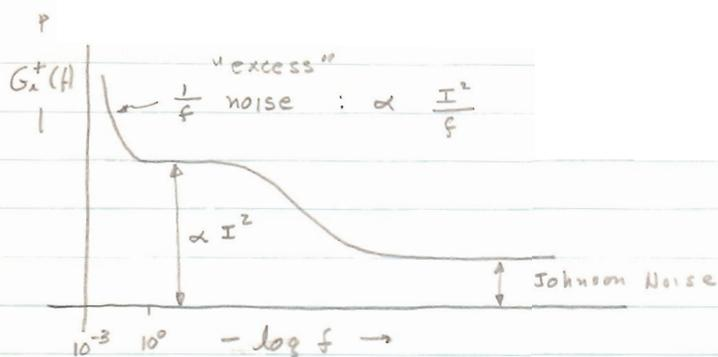 "excess"
1/f noise : ∝ I²/f
∝ I²
Johnson Noise
10⁻³ 10⁰ - log f →